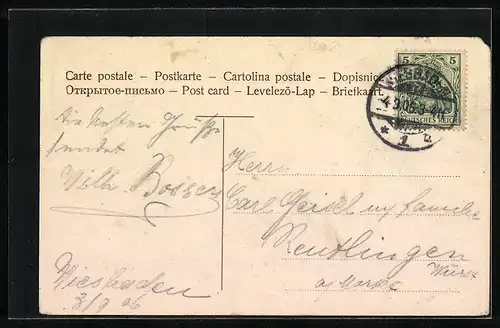 5 5
Carte postale – Postkarte – Cartolina postale – Dopisnic
Открытое-письмо – Post card – Levelező-Lap – Briefkaart
DEUTSCHES REICH
* 1 u
Die besten Grüsse
sendet
Wilh. Bosser
Wiesbaden
3/9 06
Herrn
Carl Geisel u/ familie
Reutlingen
Würt
a Markt